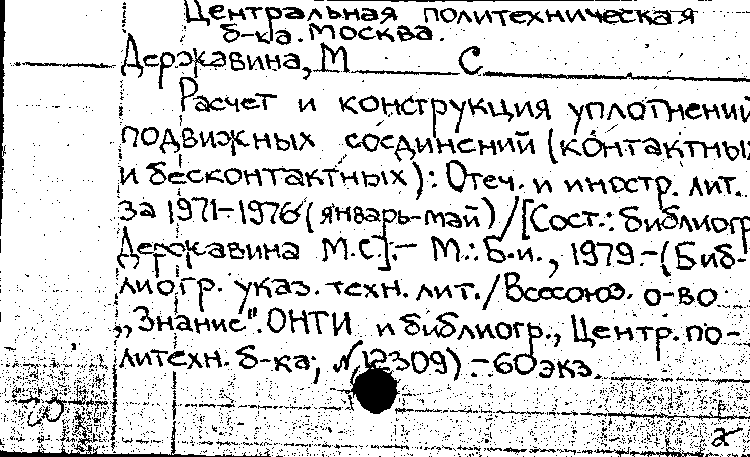 Центральная политехническая
б-ка. Москва.
Державина, М С
Расчет и конструкция уплотнений
подвижных соединений (контактных
и бесконтактных): Отеч. и иностр. лит.
за 1971-1976 (январь-май) /[Сост.: библиогр
Державина М.С].- М.: Б.и., 1979.-(Биб-
лиогр. указ. техн. лит./Всесоюз. о-во
„Знание". ОНТИ и библиогр., Центр. по-
литехн. б-ка; № 12309).-60 экз.
20
2